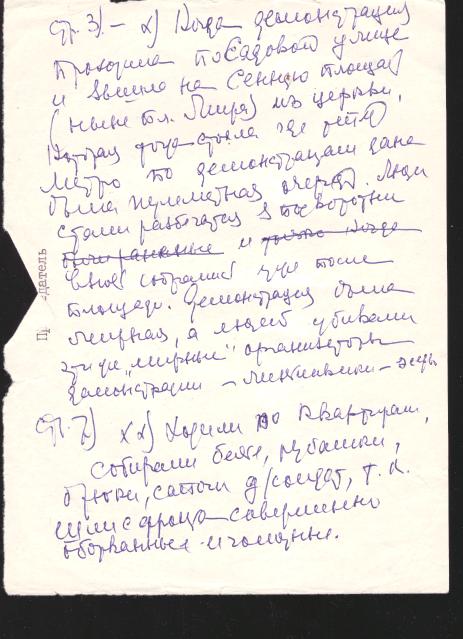 Стр. 3/ – х) Когда демонстрация
проходила по Садовой улице
и вышла на Сенную площадь
(ныне пл. Мира) из церкви,
которая тогда стояла где
метро по демонстрации дана
была пулеметная очередь. Люди
стали разбегаться в подворотни
и Когда
вновь собрались уже после
площади. Демонстрация была
мирная, а людей убивали
эти "мирные" организаторы
демонстрации – меньшевики – эсеры
Стр. 7) хх) Ходили по квартирам,
собирали белье, рубашки,
брюки, сапоги д/солдат, т. к.
шли с фронта совершенно
оборванные и голодные.
датель